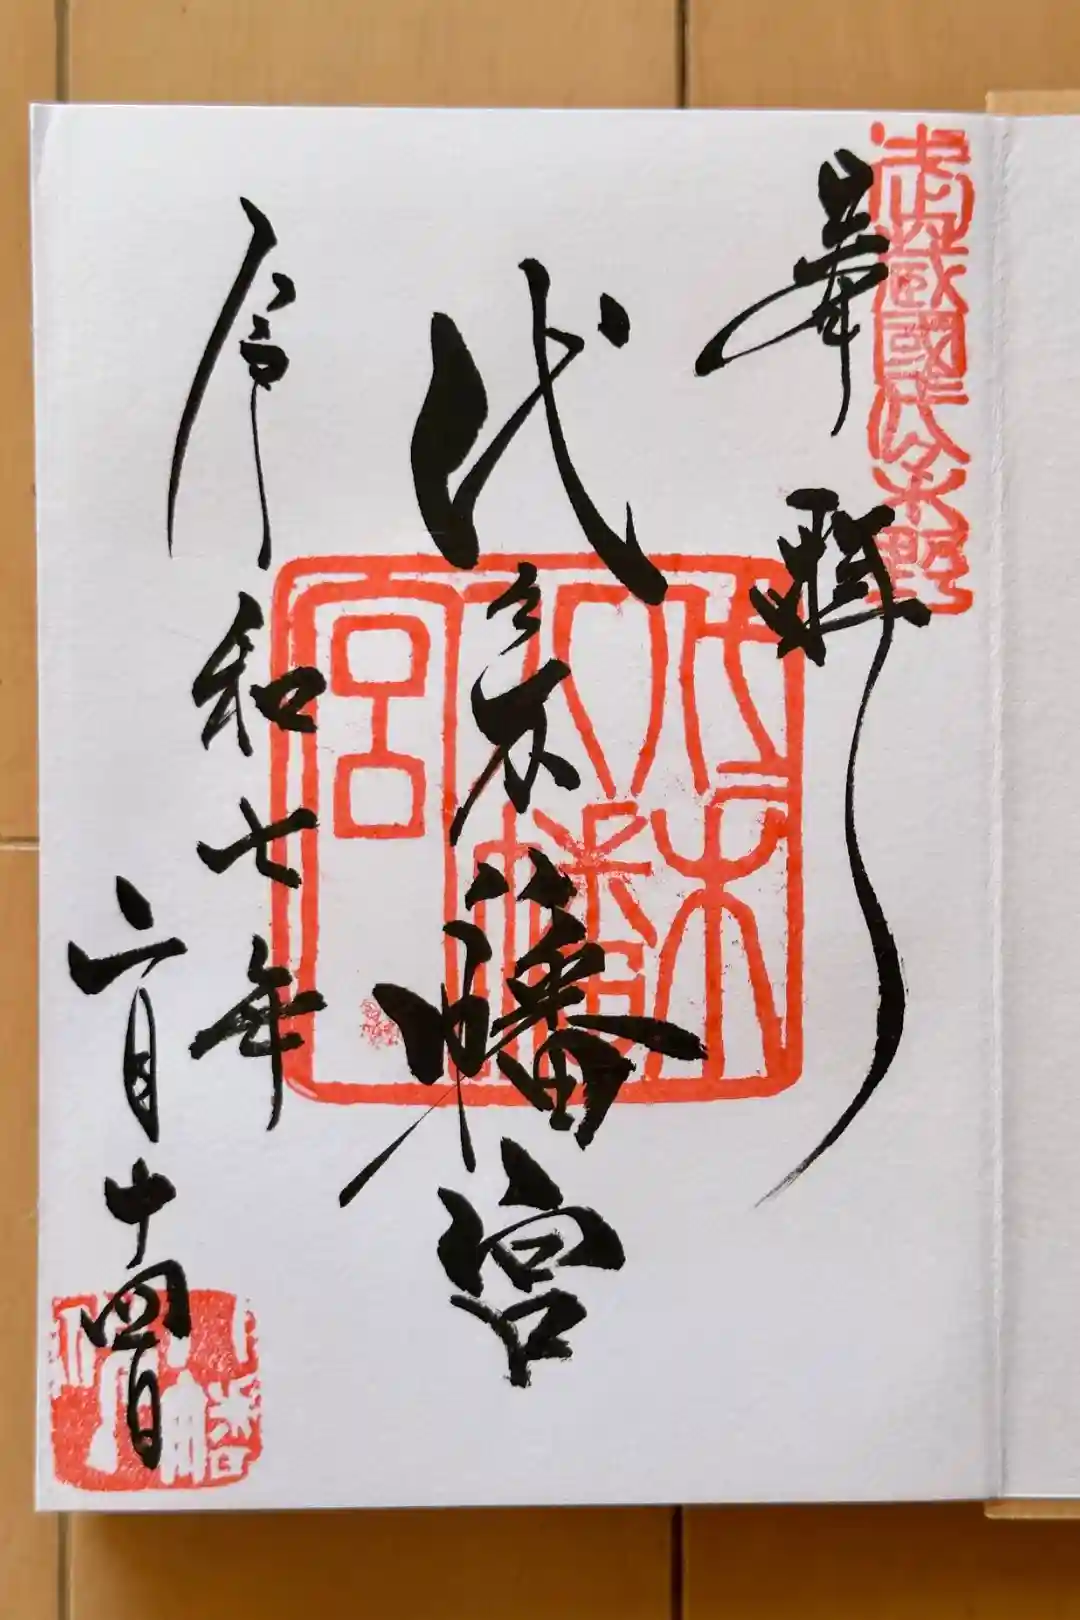 武蔵國代々木野
奉拝
代々木八幡宮
代々木
八幡
宮
令和七年
六月十四日